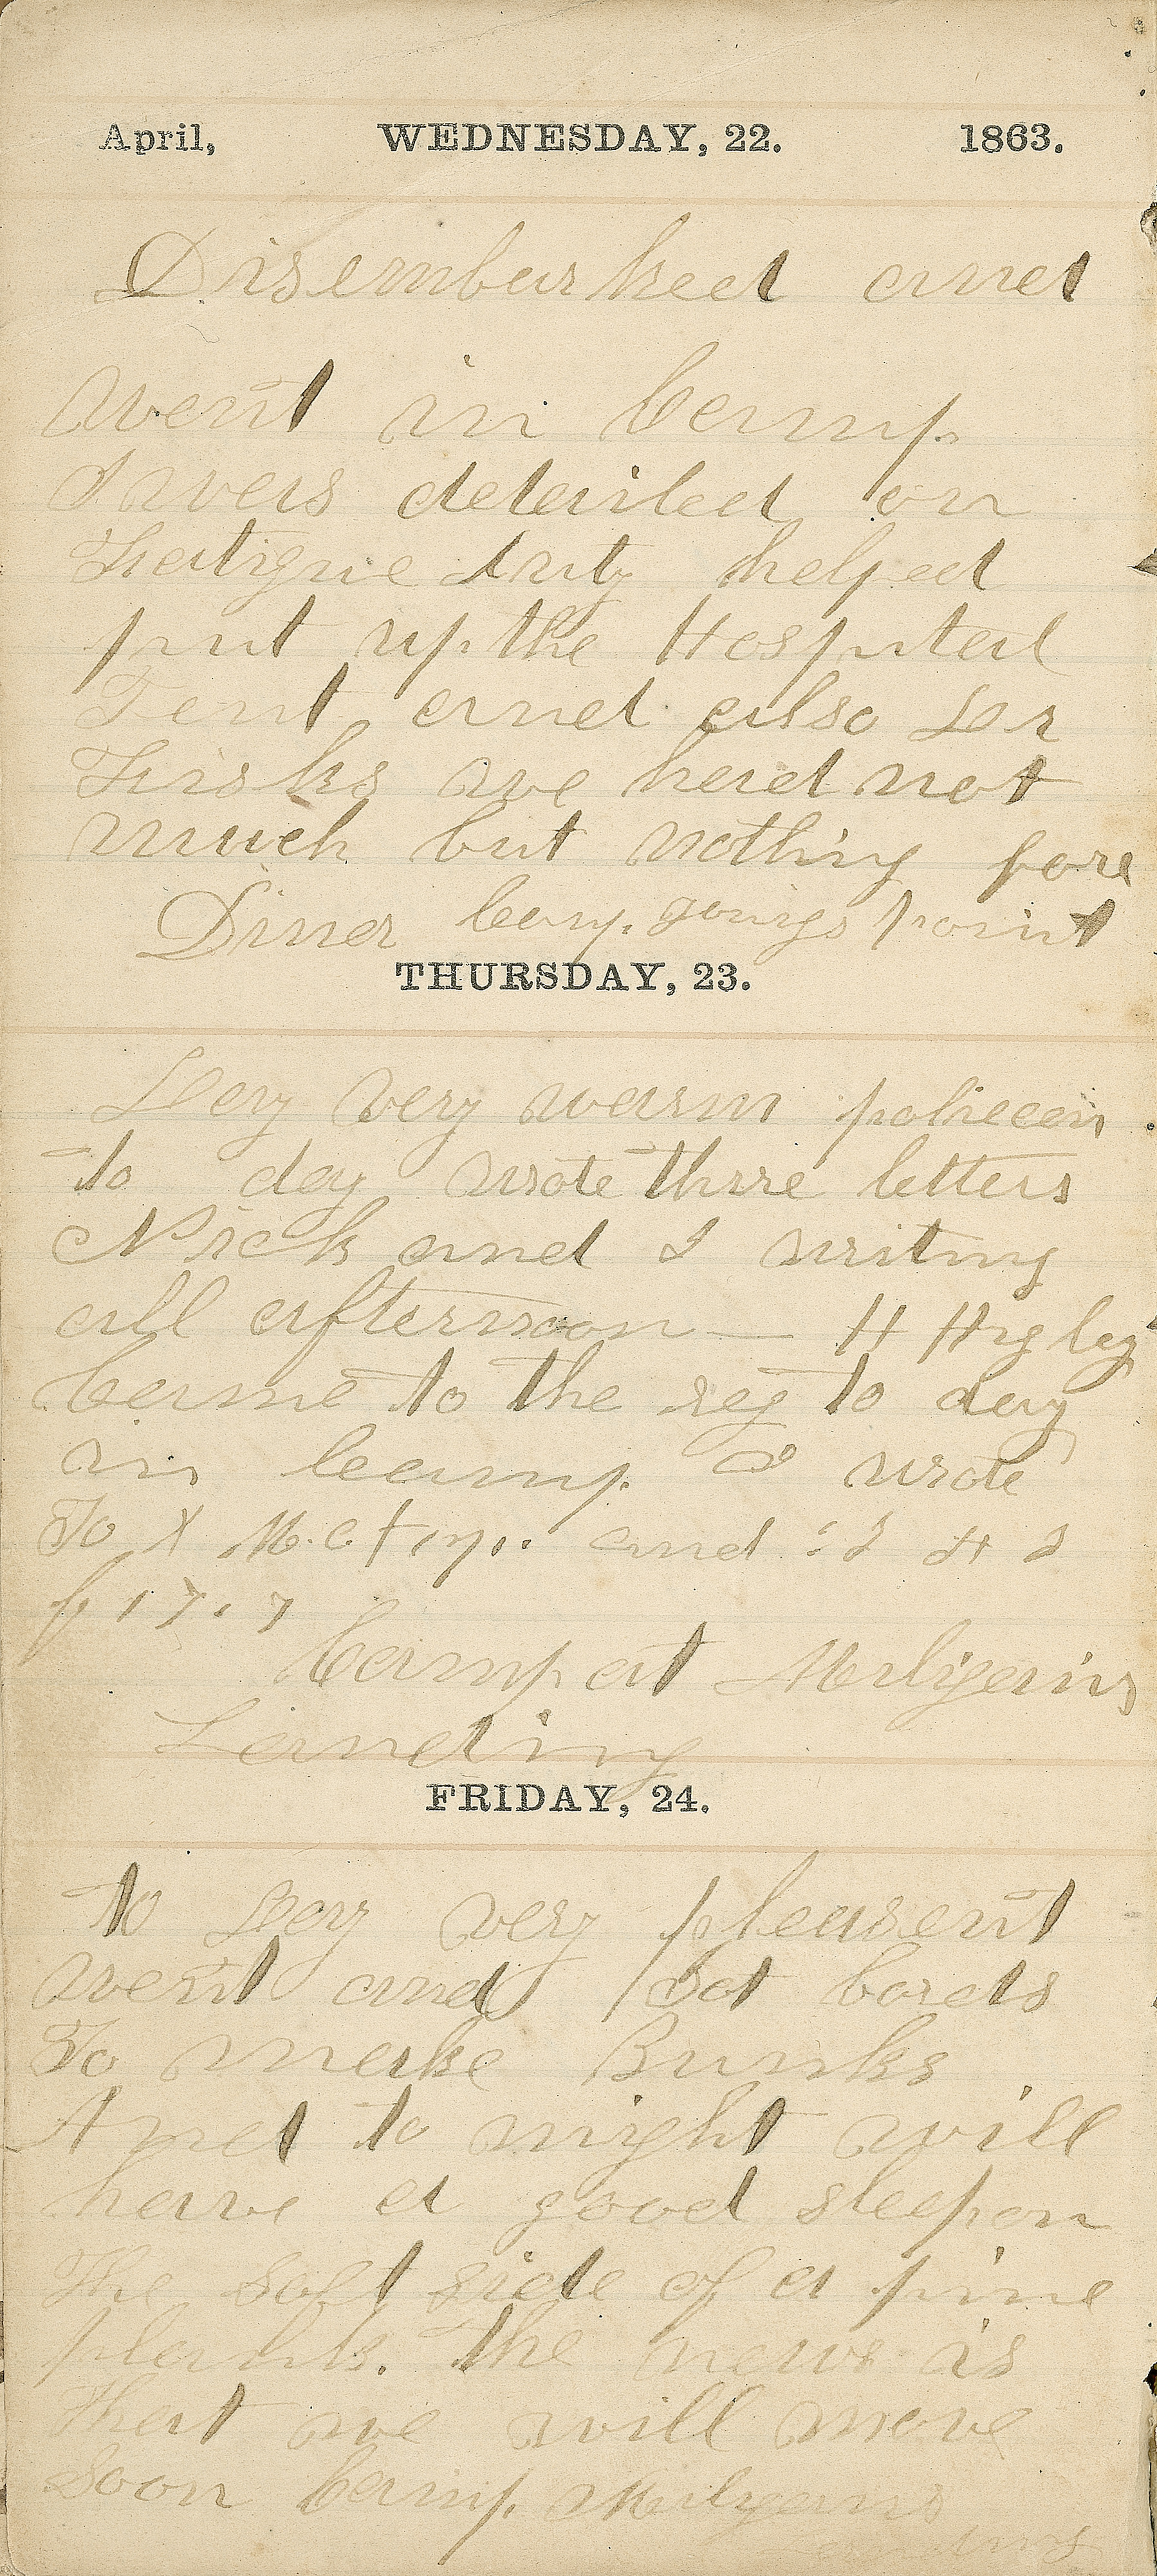 April, WEDNESDAY, 22. 1863.
Disembarked and
went in Camp
I was detailed on
Fatigue duty helped
put up the Hospital
Tent and also Dr
Fisks we had not
much but nothing for
Diner Camp youngs point
THURSDAY, 23.
Day very warm policeen
to day wrote three letters
Nick and I writing
all afternoon — H Higley
Came to the reg to day
in Camp I wrote
To and
Camp at Miligains
Landing
FRIDAY, 24.
to Day very pleasent
went and Got bords
To make Bunks
And to night will
have a good sleep on
The soft side of a pine
plank. the news is
that we will move
soon Camp Miligains
Landing